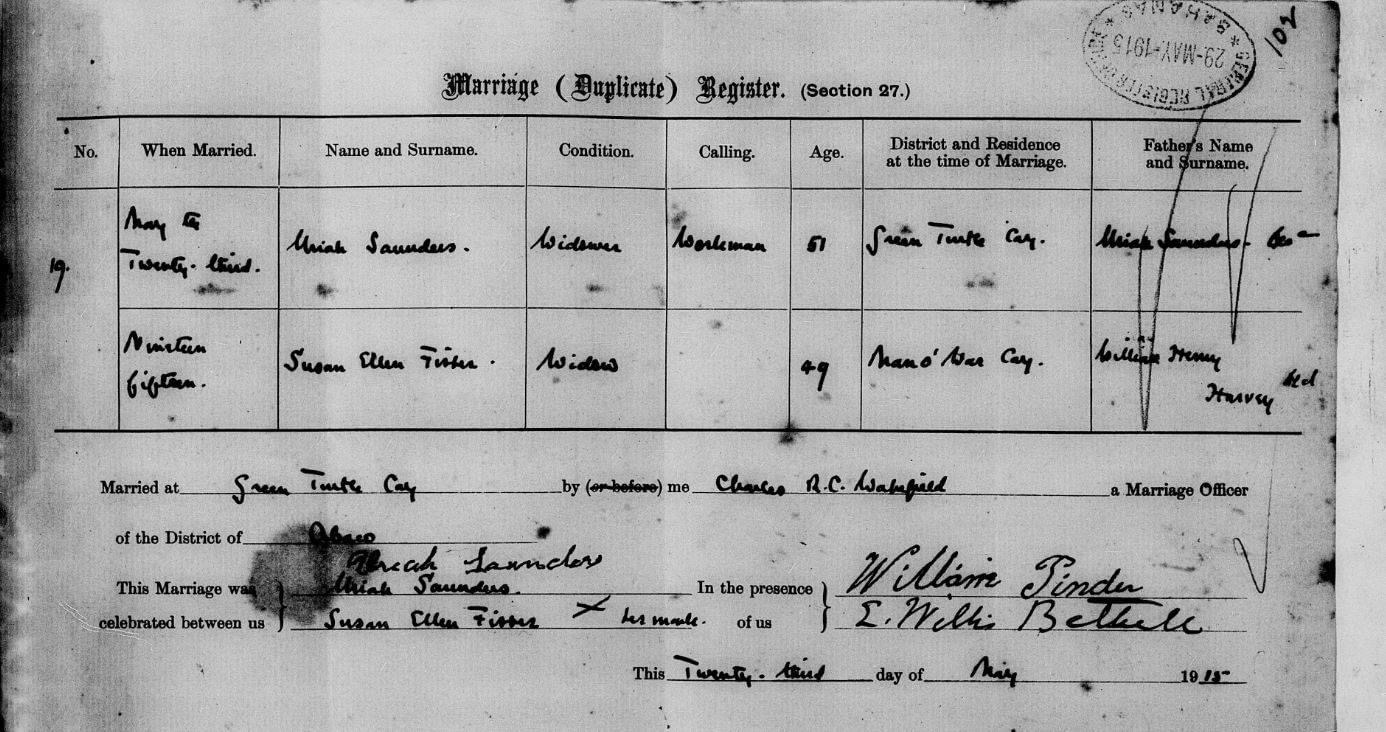 102
GENERAL REGISTER OFFICE
29-MAY-1915
* BAHAMAS *
Marriage (Duplicate) Register. (Section 27.)
No. When Married. Name and Surname. Condition. Calling. Age. District and Residence at the time of Marriage. Father's Name and Surname.
19. May the Twenty-third. Uriah Saunders. Widower Workman 51 Green Turtle Cay. Uriah Saunders.
Nineteen fifteen. Susan Ellen Fisher. Widow 49 Man o' War Cay. William Henry Harvey
Married at Green Turtle Cay by (or before) me Charles R.C. Wakefield a Marriage Officer
of the District of Abaco
Uriah Saunders
This Marriage was Uriah Saunders. In the presence William Pinder
celebrated between us Susan Ellen Fisher X her mark. of us E. Willis Bethell
This Twenty-third day of May 1915